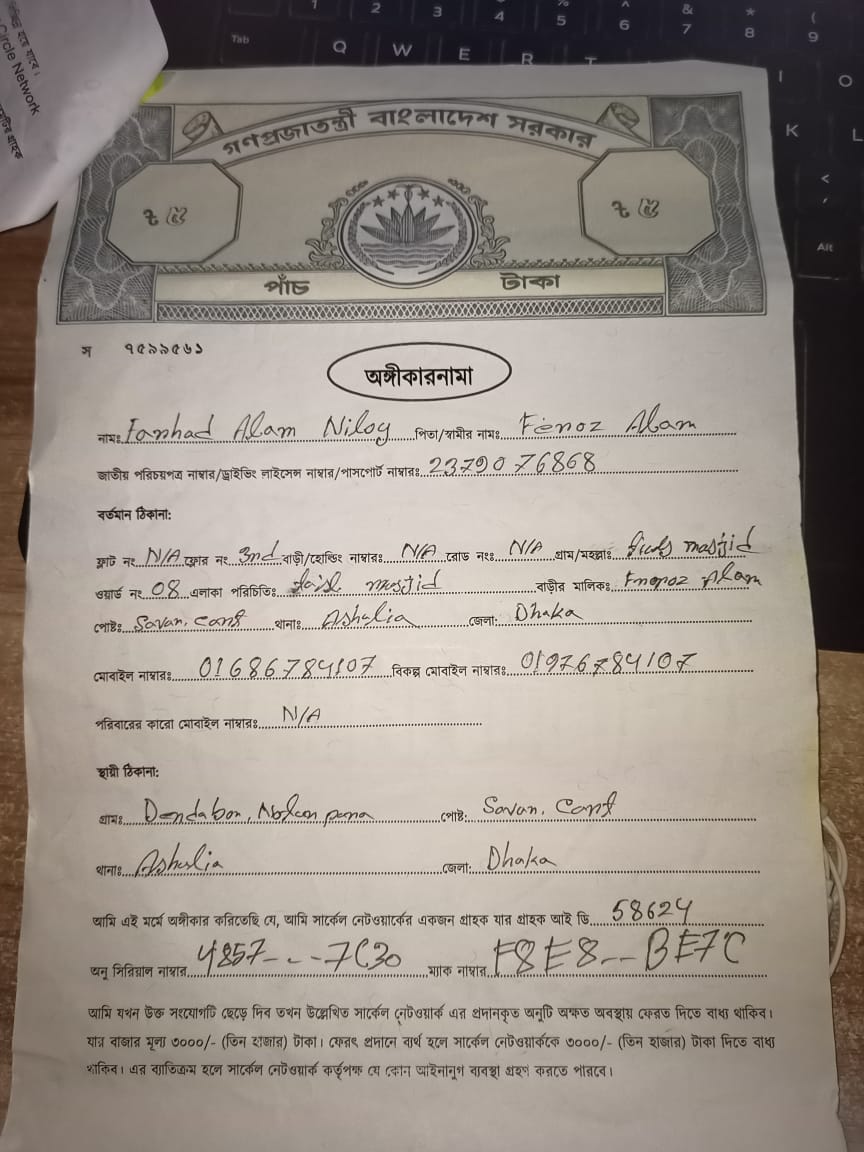 নিশ্চিত হতে হবে।
Circle Network
গ্রাহক
1 2 3 4 5 6 7 8 9
% ^ & * (
Tab Q W E R T I O
K L
<
,
Alt
গণপ্রজাতন্ত্রী বাংলাদেশ সরকার
পাঁচ টাকা
স ৭৫৯৯৫৬১
অঙ্গীকারনামা
নামঃ Farhad Alam Niloy পিতা/স্বামীর নামঃ Feroz Alam
জাতীয় পরিচয়পত্র নাম্বার/ড্রাইভিং লাইসেন্স নাম্বার/পাসপোর্ট নাম্বারঃ 2379076868
বর্তমান ঠিকানা:
ফ্লাট নং N/A ফ্লোর নং 3nd বাড়ী/হোল্ডিং নাম্বারঃ N/A রোড নংঃ N/A গ্রাম/মহল্লাঃ masjid
ওয়ার্ড নং 08 এলাকা পরিচিতিঃ masjid বাড়ীর মালিকঃ Alam
পোষ্টঃ Savar, Cant থানাঃ Ashulia জেলা: Dhaka
মোবাইল নাম্বারঃ 01686784107 বিকল্প মোবাইল নাম্বারঃ 01976784107
পরিবারের কারো মোবাইল নাম্বারঃ N/A
স্থায়ী ঠিকানা:
গ্রামঃ Dendabor, para পোষ্ট: Savar, Cant
থানাঃ Ashulia জেলা: Dhaka
আমি এই মর্মে অঙ্গীকার করিতেছি যে, আমি সার্কেল নেটওয়ার্কের একজন গ্রাহক যার গ্রাহক আই ডি 58624
অনু সিরিয়াল নাম্বার 4857---7C30 ম্যাক নাম্বার F8E8--BE7C
আমি যখন উক্ত সংযোগটি ছেড়ে দিব তখন উল্লেখিত সার্কেল নেটওয়ার্ক এর প্রদানকৃত অনুটি অক্ষত অবস্থায় ফেরত দিতে বাধ্য থাকিব।
যার বাজার মূল্য ৩০০০/- (তিন হাজার) টাকা। ফেরৎ প্রদানে ব্যর্থ হলে সার্কেল নেটওয়ার্ককে ৩০০০/- (তিন হাজার) টাকা দিতে বাধ্য
থাকিব। এর ব্যতিক্রম হলে সার্কেল নেটওয়ার্ক কর্তৃপক্ষ যে কোন আইনানুগ ব্যবস্থা গ্রহণ করতে পারবে।